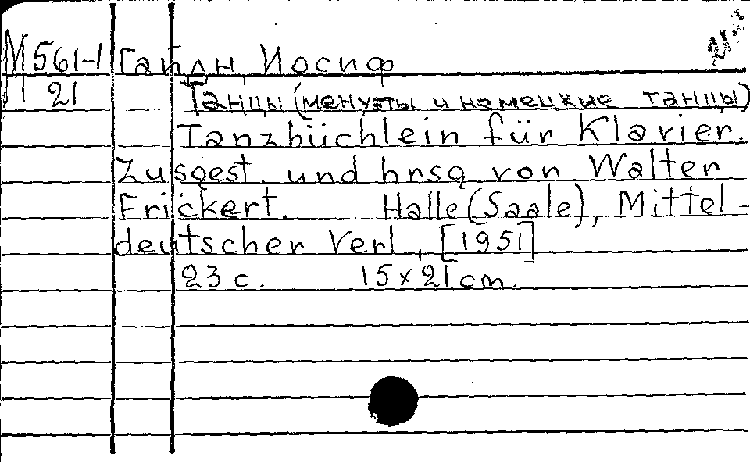 М561-1 Гайдн, Иосиф
21 Танцы (менуэты и немецкие танцы)
Tanzbüchlein für Klavier.
Zusgest. und hrsg. von Walter
Frickert. Halle (Saale), Mittel-
deutscher Verl., [1951]
23 с. 15×21 cm.